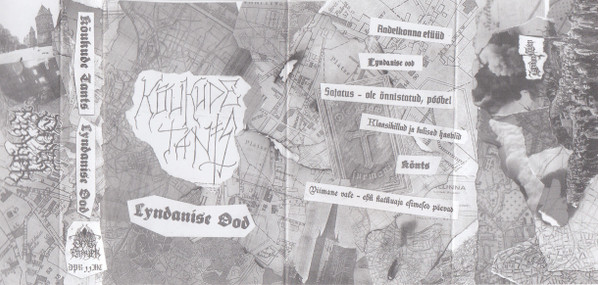 Kõukude Tants
Lyndanise Ood
KÕUKUDE
TANTS
Lyndanise Ood
Aadelkonna etüüd
Lyndanise ood
Sajatus - ole õnnistatud, pööbel
Klaasikillud ja tulised haavlid
Kõnts
Viimane vale - ehk katkuaja esimesed päevad